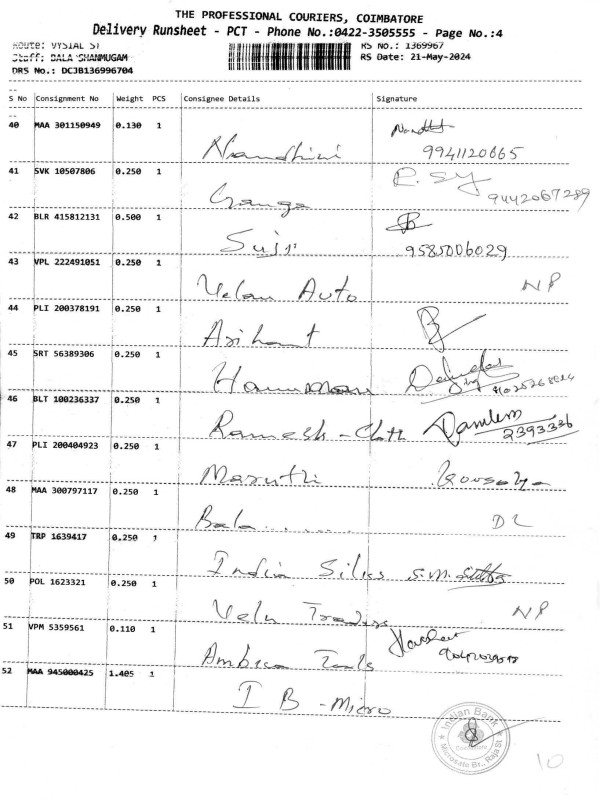 THE PROFESSIONAL COURIERS, COIMBATORE
Delivery Runsheet - PCT - Phone No.:0422-3505555 - Page No.:4
Route: VYSIAL ST RS No.: 1369967
Staff: BALA SHANMUGAM RS Date: 21-May-2024
DRS No.: DCJB136996704
S No Consignment No Weight PCS Consignee Details Signature
40 MAA 301150949 0.130 1
Nandhini 9941120665
41 SVK 10507806 0.250 1
Ganga 9442067289
42 BLR 415812131 0.500 1
Suji 9585006029
43 VPL 222491051 0.250 1
Velan Auto NP
44 PLI 200378191 0.250 1
Arihant
45 SRT 56389306 0.250 1
Hanuman
46 BLT 100236337 0.250 1
Ramesh - Cloth 2393336
47 PLI 200404923 0.250 1
Maruthi
48 MAA 300797117 0.250 1
Bala...... DL
49 TRP 1639417 0.250 1
India Silks S.M.
50 POL 1623321 0.250 1
Velu Traders NP
51 VPM 5359561 0.110 1
Ambica Tools
52 MAA 945000425 1.405 1
I B - Micro
Indian Bank
Coimbatore
Microsate Br., Raja St
10